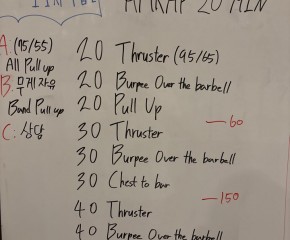 AMRAP 20 MIN
A. (95/55)
All Pull up
B. 무게 자유
Band Pull up
C. 상담
20 Thruster (95/65)
20 Burpee Over the barbell
20 Pull Up
— 60
30 Thruster
30 Burpee Over the barball
30 Chest to bar
— 150
40 Thruster
40 Burpee Over the barbell